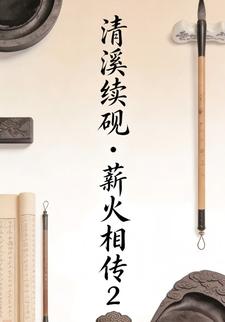 清溪续砚·薪火相传2